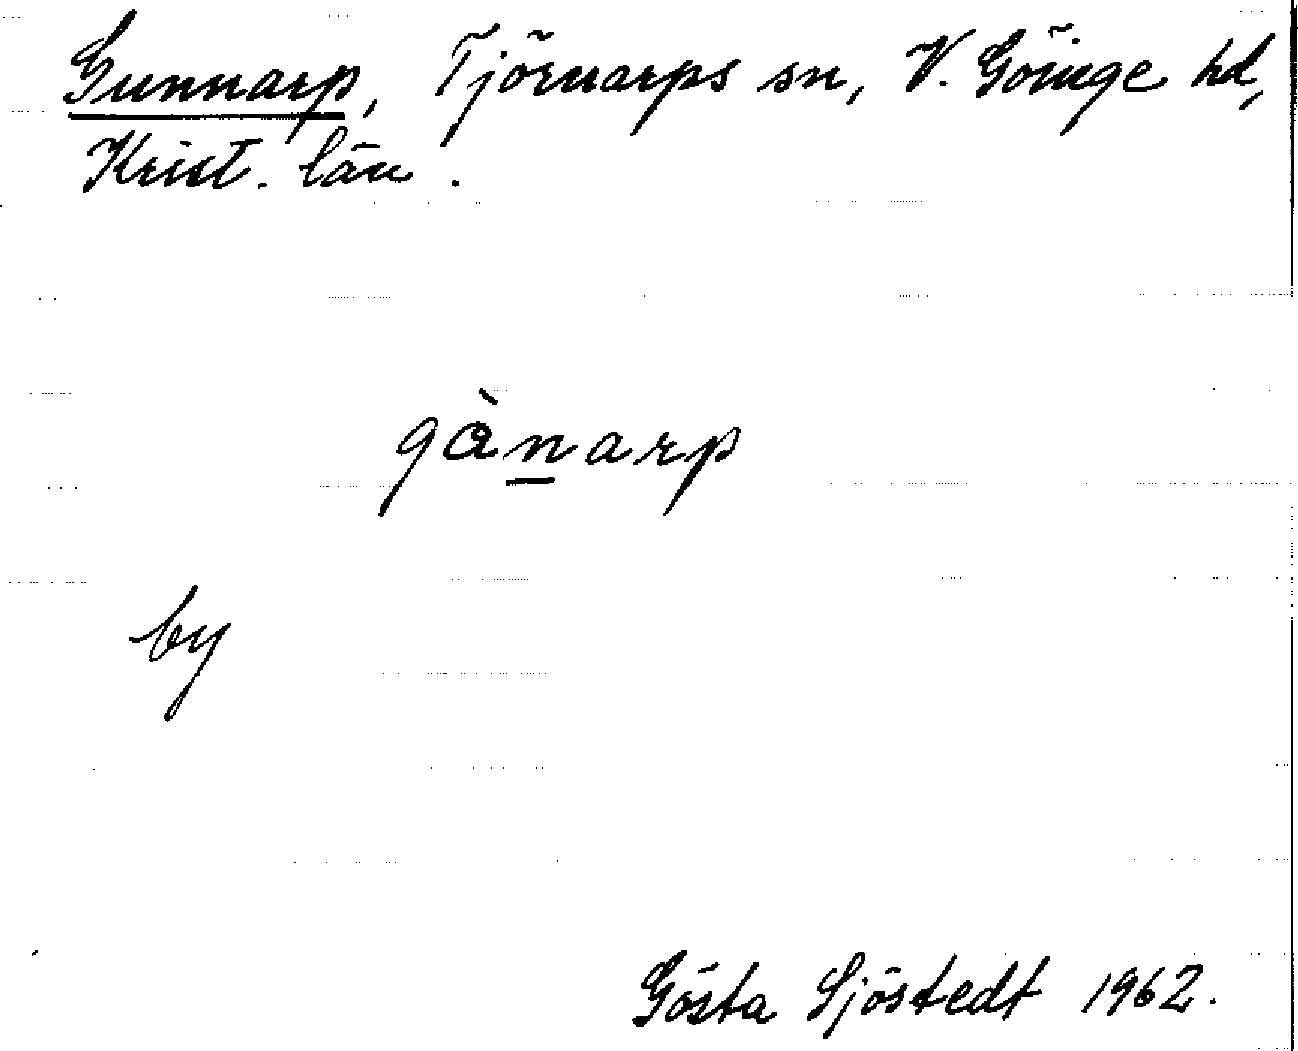 Gunnarp, Tjörnarps sn, V. Göinge hd,
Krist. län.
gànarp
by
Gösta Sjöstedt 1962.